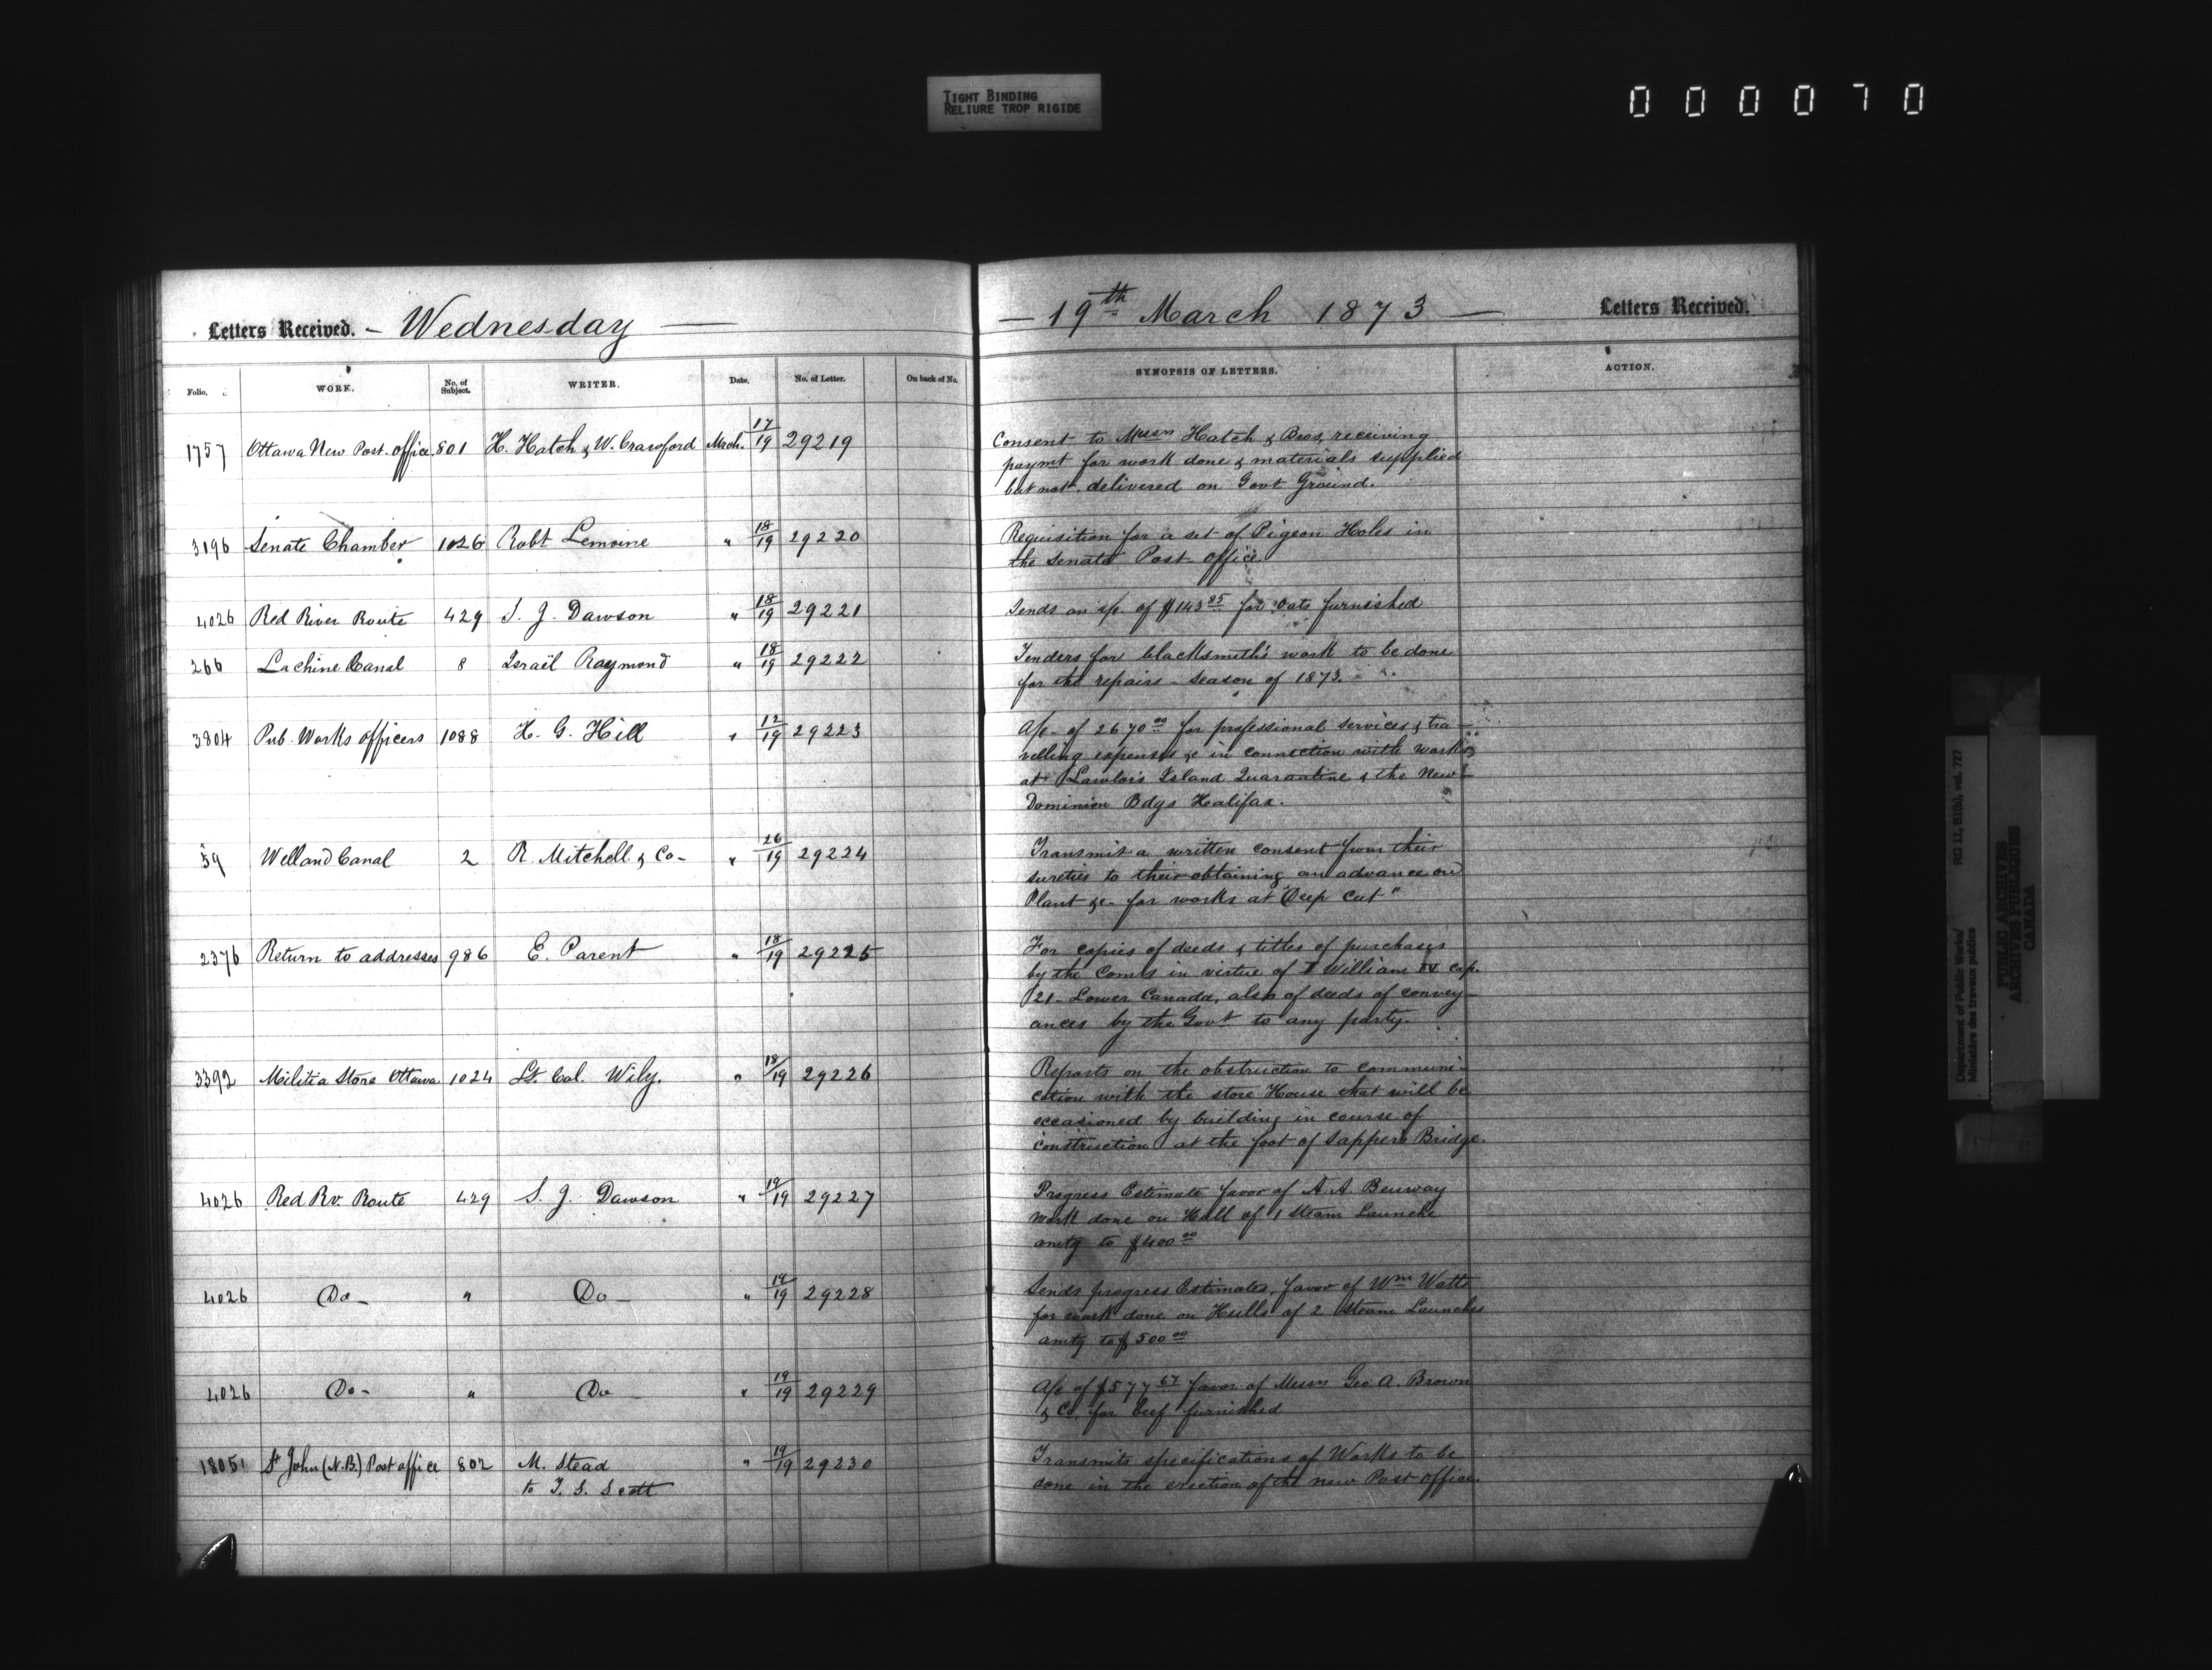 TIGHT BINDING
RELIURE TROP RIGIDE
000070
Letters Received. - Wednesday — — 19th March 1873 — Letters Received.
Folio. WORK. No. of Subject. WRITER. Date. No. of Letter. On back of No. SYNOPSIS OF LETTERS. ACTION.
1757 Ottawa New Post. office. 801 H. Hatch & W. Crawford Mrch. 17/19 29219 Consent to Messrs Hatch & Bros, receiving
paymt for work done & materials supplied
but not delivered on Govt Ground.
3196 Senate Chamber 1026 Robt Lemoine " 18/19 29220 Requisition for a set of Pigeon Holes in
the Senate Post office.
4026 Red River Route 429 S. J. Dawson " 18/19 29221 Sends an a/c. of $143.85 for oats furnished
266 Lachine Canal 8 Israël Raymond " 18/19 29222 Tenders for blacksmith's work to be done
for the repairs - season of 1873.
3804 Pub. Works officers 1088 H. G. Hill " 12/19 29223 A/c of 2670.00 for professional services & tra-
velling expenses &c in connection with works
at Lawlor's Island Quarantine & the New
Dominion Bdgs Halifax.
59 Welland Canal 2 R. Mitchell & Co- " 26/19 29224 Transmit a written consent from their
sureties to their obtaining an advance on
Plant &c- for works at "Deep Cut"
2376 Return to addresses 986 E. Parent " 18/19 29225 For copies of deeds & titles of purchases
by the Coms in virtue of I William IV cap.
21- Lower Canada, also of deeds of convey-
ances by the Govt to any party.
3392 Militia Store Ottawa 1024 Lt. Col. Wily. " 18/19 29226 Reports on the obstruction to communi-
cation with the store House that will be
occasioned by building in course of
construction at the foot of Sappers Bridge.
4026 Red Rv. Route 429 S. J. Dawson " 19/19 29227 Progress Estimate favor of A. A. Benway
work done on Hull of 1 Steam Launch
amtg to $400.00
4026 Do- " Do- " 19/19 29228 Sends progress Estimates, favor of Wm Watts
for work done on Hulls of 2 Steam Launches
amtg to $500.00
4026 Do- " Do- " 19/19 29229 A/c of $577.67 favor of Messrs Geo A. Brown
& Co. for beef furnished
1805 St John (N.B.) Post office 802 M. Stead " 19/19 29230 Transmits specifications of Works to be
to T. S. Scott done in the erection of the new Post office.
Department of Public Works/ RG 11, B1(b), vol. 727
Ministère des travaux publics
PUBLIC ARCHIVES
ARCHIVES PUBLIQUES
CANADA